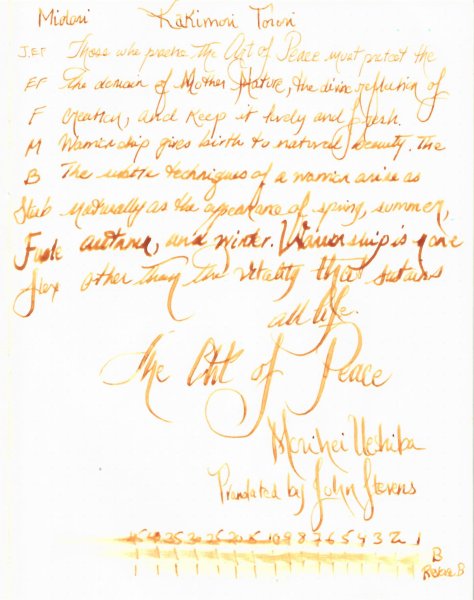 Midori Kakimori Town
J.EF Those who practice the Art of Peace must protect the
EF the domain of Mother Nature, the divine reflection of
F creation, and keep it lively and fresh.
M Warriorship gives birth to natural beauty. The
B The subtle techniques of a warrior arise as
Stub naturally as the appearance of spring, summer,
Fude autumn, and winter. Warriorship is none
flex other than the vitality that sustains
all life.
The Art of Peace
Morihei Ueshiba
Translated by John Stevens
10 9 8 7 6 5 4 3 2 1
B